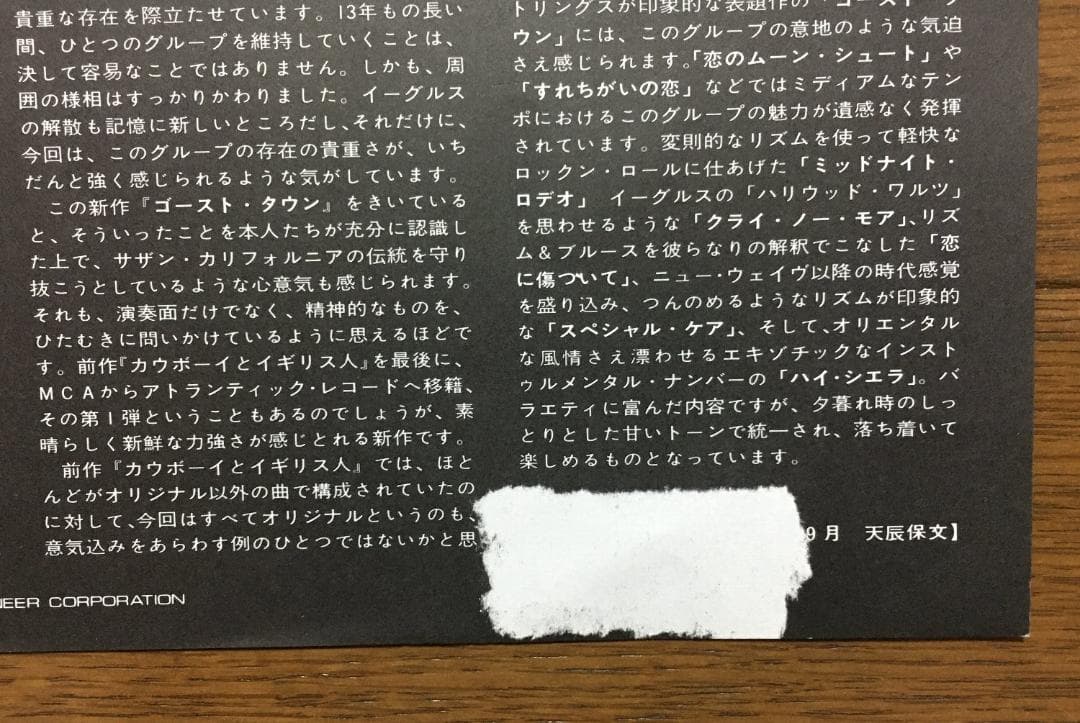 貴重な存在を際立たせています。13年もの長い
間、ひとつのグループを維持していくことは、
決して容易なことではありません。しかも、周
囲の様相はすっかりかわりました。イーグルス
の解散も記憶に新しいところだし、それだけに、
今回は、このグループの存在の貴重さが、いち
だんと強く感じられるような気がしています。
この新作『ゴースト・タウン』をきいている
と、そういったことを本人たちが充分に認識し
た上で、サザン・カリフォルニアの伝統を守り
抜こうとしているような心意気も感じられます。
それも、演奏面だけでなく、精神的なものを、
ひたむきに問いかけているように思えるほどで
す。前作『カウボーイとイギリス人』を最後に、
MCAからアトランティック・レコードへ移籍、
その第1弾ということもあるのでしょうが、素
晴らしく新鮮な力強さが感じとれる新作です。
前作『カウボーイとイギリス人』では、ほと
んどがオリジナル以外の曲で構成されていたの
に対して、今回はすべてオリジナルというのも、
意気込みをあらわす例のひとつではないかと思
NEER CORPORATION
トリングスが印象的な表題作の「ゴースト・タ
ウン」には、このグループの意地のような気迫
さえ感じられます。「恋のムーン・シュート」や
「すれちがいの恋」などではミディアムなテン
ポにおけるこのグループの魅力が遺感なく発揮
されています。変則的なリズムを使って軽快な
ロックン・ロールに仕あげた「ミッドナイト・
ロデオ」 イーグルスの「ハリウッド・ワルツ」
を思わせるような「クライ・ノー・モア」、リズ
ム&ブルースを彼らなりの解釈でこなした「恋
に傷ついて」、ニュー・ウェイヴ以降の時代感覚
を盛り込み、つんのめるようなリズムが印象的
な「スペシャル・ケア」、そして、オリエンタル
な風情さえ漂わせるエキゾチックなインスト
ゥルメンタル・ナンバーの「ハイ・シエラ」。バ
ラエティに富んだ内容ですが、夕暮れ時のしっ
とりとした甘いトーンで統一され、落ち着いて
楽しめるものとなっています。
9月 天辰保文】